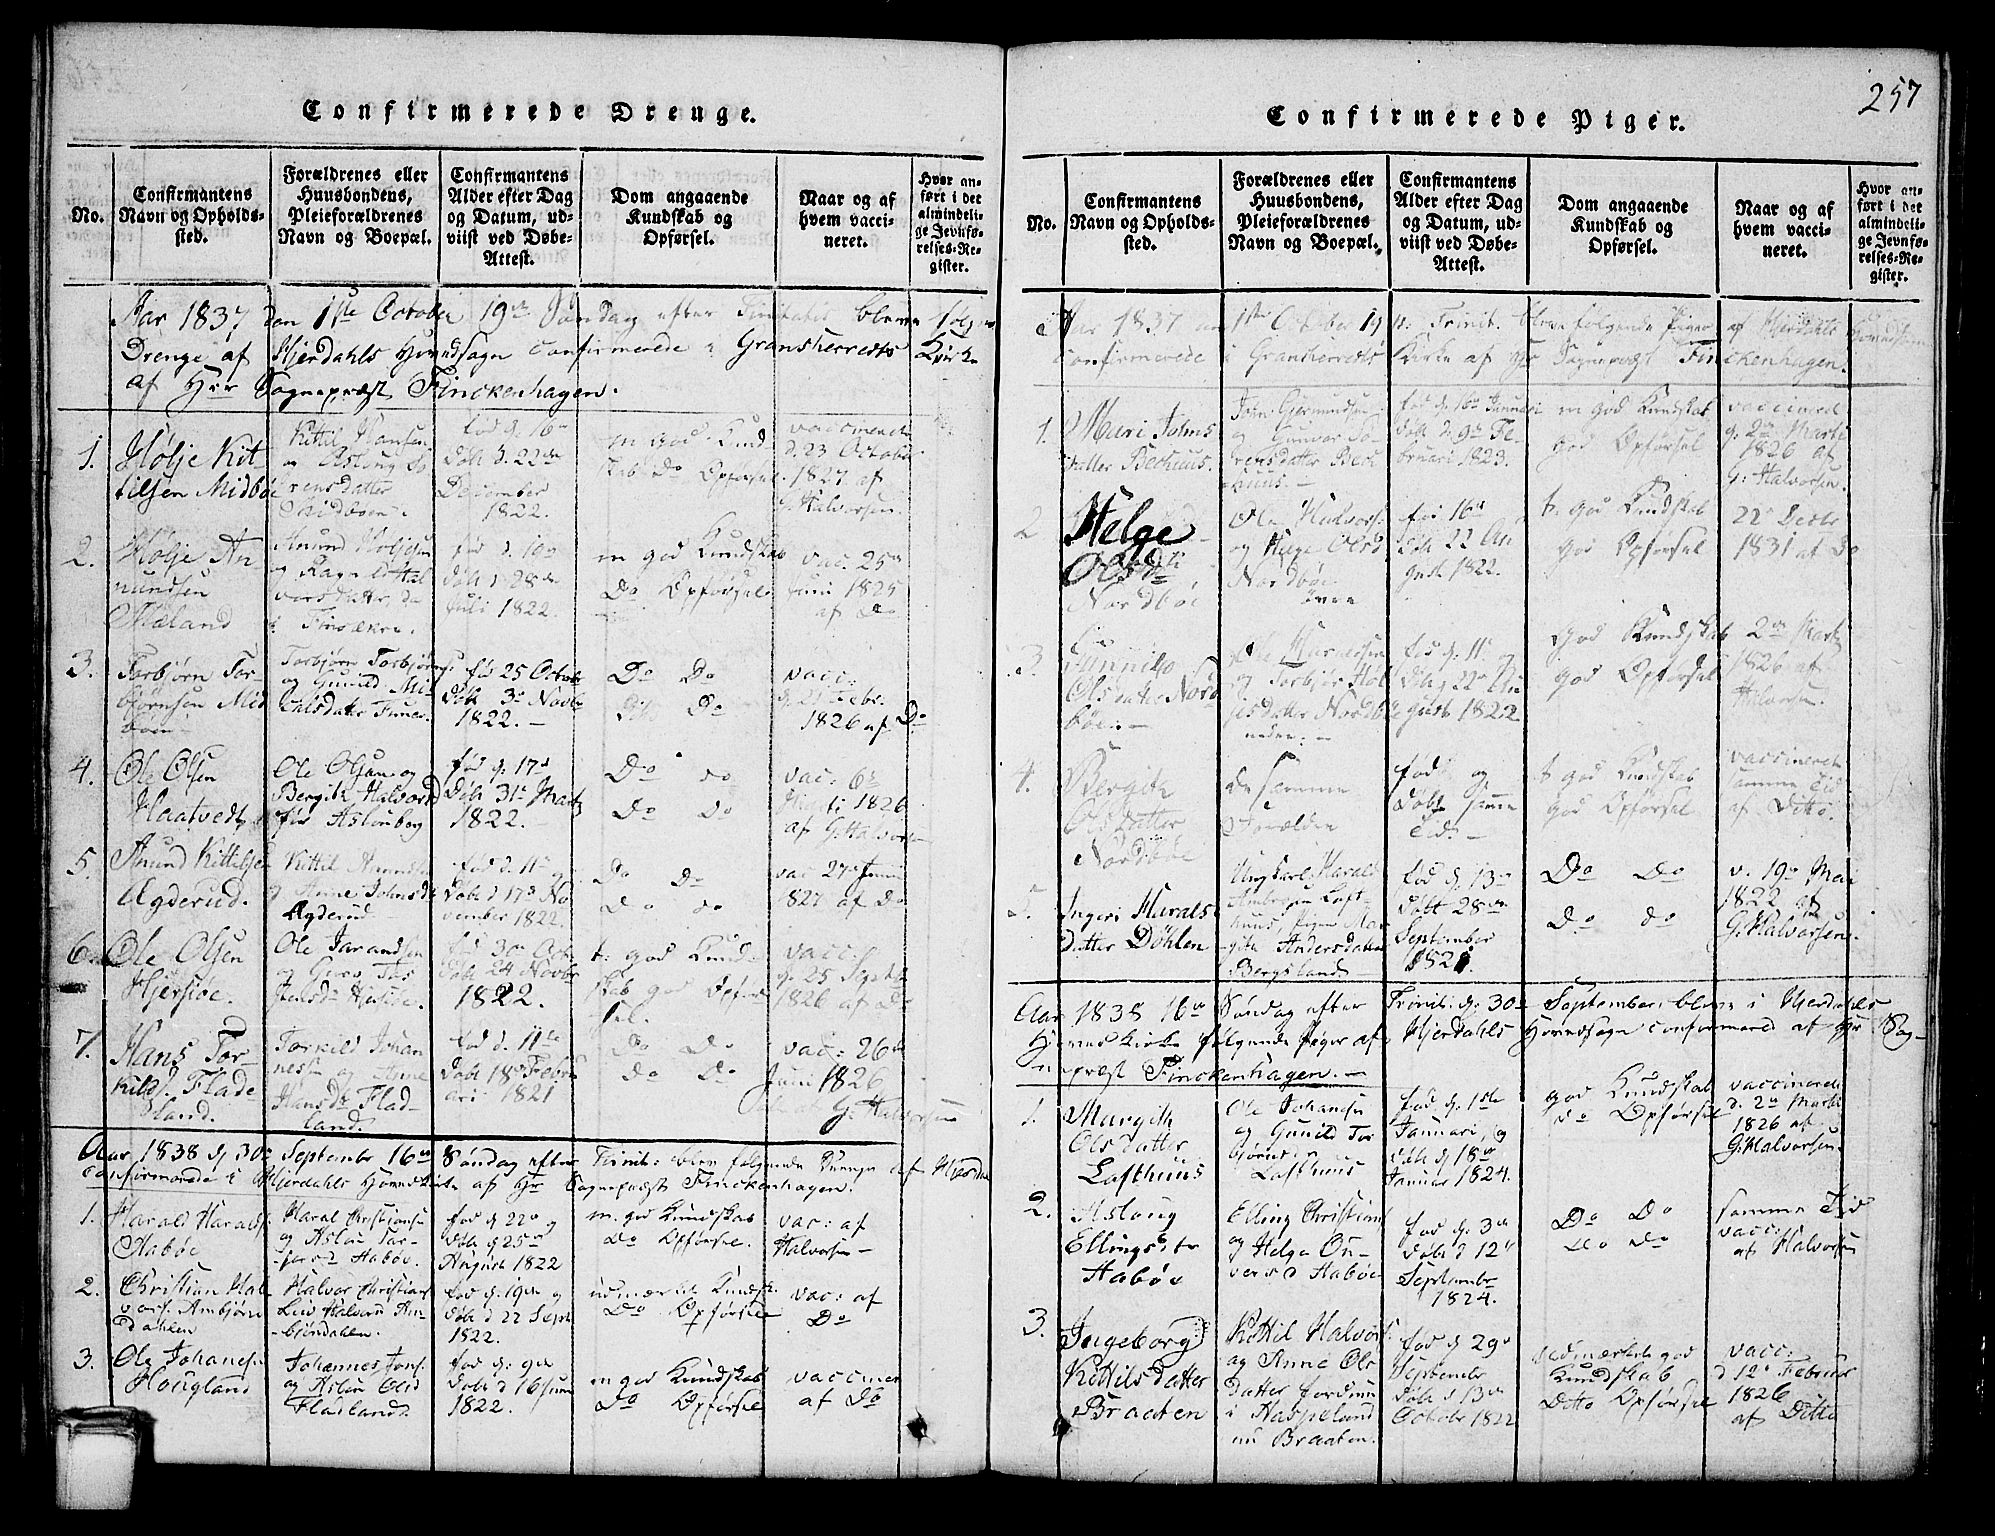 257
Confirmerede Drenge.
No.
Confirmantens
Navn og Opholds-
sted.
Forældrenes eller
Huusbondens,
Pleieforældrenes
Navn og Boepæl.
Confirmantens
Alder efter Dag
og Datum, ud-
viist ved Døbe-
Attest.
Dom angaaende
Kundskab og
Opførsel.
Naar og af
hvem vacci-
neret.
Hvor an-
ført i det
almindeli-
ge Jevnfø-
relses-Re-
gister.
Aar 1837 den 1ste October 19de Søndag efter Trinitatis bleve følgende
Drenge af Hjerdahls Hovedsogn confirmerede i Gransherreds Kirke
af Hrr Sognepræst Finckenhagen.
1.
Hølje Kit-
tilsen Midbøe
Kittil Hansen
og Asloug So
rensdatter
Midbøen
fød d. 16de
Døbt d. 22de
December
1822.
m god Kund
skab Do Opførsel
vaccineret
d. 23 October
1827 af
G. Halvorsen
2.
Hølje An
nundsen
Mæland
Anund Høljesen
og Ragnild Hal
vorsdatter
Finsækre.
fød d. 10de
Døbt d. 28de
Juli 1822.
m god Kundskab
Do Opførsel
vac. 25de
Juni 1825
af Do
3.
Torbjørn Tor
bjørnsen Mid
bøen
Torbjørn Torbjørns
og Gunild Mi-
chelsdatter
fød 25 Octob
Døbt 3de Novbr
1822.
Do Do
Do Do
vacc:
d. 21 Febr.
1826 af Do
4.
Ole Olsen
Haatvedt
Ole Olsen og
Bergith Halvorsd
Aslonberg
fød d. 17de
Døbt 31te Martz
1822.
Do do
Do do
vac: 6te
1826
af G. Halvors
5.
Anund Kittilsen
Agderud.
Kittil Anundsen
og Anne Johnsd
Agderud
fød d. 11te og
Døbt d 17de No
vember 1822.
Do Do
Do do
vac 27de Juni
1827 af Do
6.
Ole Olsen
Hjersøe.
Ole Jarandsen
og Gero
Hjersøe.
fød 30te Octo
Døbt 24 Novbr
1822.
t. god Kund
skab god Opfør
sel.
vacc:
d. 25 Septbr
1826 af Do
7.
Hans Tor-
kilds. Flade
land.
Torkild Johan
nesen og Anne
Hansdr Flad-
land.
fød d. 11te
Døbt 18de Febru
ari 1821
Do Do
Do Do
vac: 26de
Juni 1826
G. Halvorsen
Aar 1838 d 30te September 16de Søndag efter Trinit: bleve følgende Drenge af Hjerdahl
confirmerede i Hjerdahls Hovedkirke af Hr Sognepræst Finckenhagen.
1.
Harald Haralds
Haboe
Haral Christians
og Aslau
Haboe.
fød d 22de og
Døbt d 25de
August 1822
m. god Kundskab
Do Opførsel.
vac: af
Halvorsen
2.
Christian Hal
vors. Ambjøn
dahlen
Halvor Christians
Liv Halvord Am-
bjøndalen.
fød d: 19de og
Døbt d 22 Sept
1822.
udmærket Kundsk:
Do Opførsel
vac: af
Do
3.
Ole Johanes:
Hougland
Johannes Jons:
og Aslau Olsd
Fladland.
fød d: 9de
Døbt d 16 Juni
1822.
m god Kundskab
Do Opførsel
vacciner
af Do
Confirmerede Piger.
No.
Confirmantens
Navn og Opholds-
sted.
Forældrenes eller
Huusbondens,
Pleieforældrenes
Navn og Boepæl.
Confirmantens
Alder efter Dag
og Datum, ud-
viist ved Døbe-
Attest.
Dom angaaende
Kundskab og
Opførsel.
Naar og af
hvem vacci-
neret.
Hvor an-
ført i det
almindeli-
ge Jevnfø-
relses-Re-
gister.
Aar 1837 den 1ste October 19 p. Trinit. bleve følgende Piger af Hjerdahls Hovedsogn
confirmerede i Gransherreds Kirke af Hr Sognepræst Finckenhagen.
1.
Mari Johns
datter Bechuus.
John Gjermundsen
og Gunvor So
rensdatter Bech
huus.
fød d. 16de Januari
døbt d. 9de Fe
bruari 1823.
m god Kundskab
god Opførsel
vaccineret
d. 2den Marti
1826 af
G: Halvorsen.
2
Helge
Olsdr
Nordbøe
Ole Halvors.
og Helge Olsd
Nordbøe
øvre
fød 16de
Døbt 22 Au
gust 1822.
t. god Kundskab
god Opførsel
22de Decbr
1831 af Do
3
Gunnild
Olsdatter Nord
bøe.
Ole
og Torbjør Høl
jesdatter Nordbøe
nedre.
fød d. 11te og
Døbt d 22de Au
gust 1822
God Kundskab
god Opførsel
2den Martz
1826 af
Halvorsen
4.
Bergith
Olsdatter
Nordbøe
de samme
Forældre
født og
Døbt samme
Tid.
t god Kundskab
god Opførsel
vaccineret
samme Tid
af Ditto.
5.
Ingeri Harals
datter Døhlen
Ungkarl Harald
Loft
huus, Pigen Mar
gith Andersdatter
Bergsland
fød d. 13de
Døbt 28de
September
1821.
Do Do
Do do
v. 19de Mai
1822 af
G. Halvorsen.
Aar 1838 16de Søndag efter Trinit: d. 30te September bleve i Hjerdahls
Hovedkirke følgende Piger af Hjerdahls Hovedsogn confirmered af Hr Sog-
nepræst Finckenhagen.
1.
Margith
Olsdatter
Lofthuus
Ole Johansen
og Gunild Tor
bjørns
Lofthuus
fød d. 1ste
Januari, og
Døbt d 18de
Januar 1824.
god Kundskab
do Opførsel
vaccineret
d. 2de Martz
1826 af
G. Halvorsen.
2.
Aslaug
Ellingsdtr
Haboe
Elling Christians
og Helge On-
versd Haboe
fød d. 3de
Døbt d 12te
Septembr
1824.
Do Do
Do Do
samme Tid
vacc:
af Halvorsen
3.
Ingeborg
Kittilsdatter
Braaten
Kittil Halvors:
og Anne Ols
datter fordum
i Haspeland
nu Braaten.
fød d 29de
Septembr
Døbt d 13de
Octobr 1822
udmærket god
Kundskab
Ditto Opførsel
vacc:
d 12te Februar
1826
af Ditto